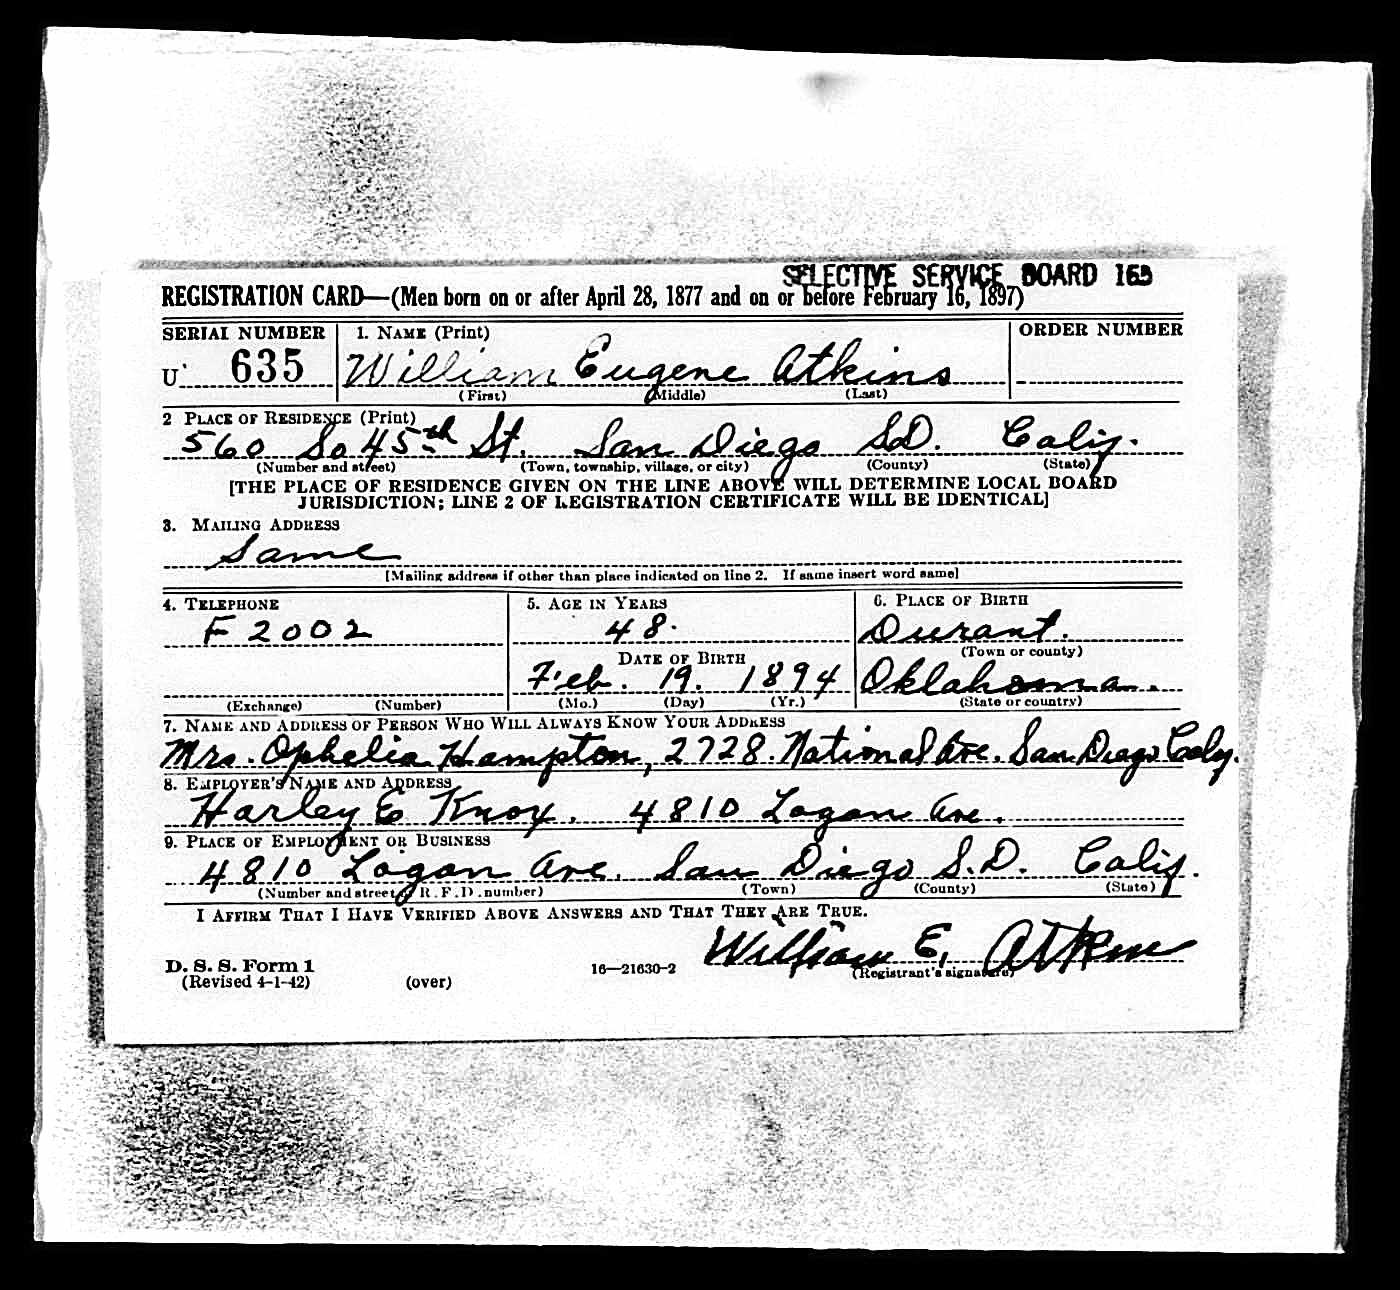 SELECTIVE SERVICE BOARD 165
REGISTRATION CARD—(Men born on or after April 28, 1877 and on or before February 16, 1897)
SERIAL NUMBER 1. NAME (Print) ORDER NUMBER
U 635 William Eugene Atkins
(First) (Middle) (Last)
2 PLACE OF RESIDENCE (Print)
560 So 45th St. San Diego S.D. Calif.
(Number and street) (Town, township, village, or city) (County) (State)
[THE PLACE OF RESIDENCE GIVEN ON THE LINE ABOVE WILL DETERMINE LOCAL BOARD
JURISDICTION; LINE 2 OF REGISTRATION CERTIFICATE WILL BE IDENTICAL]
3. MAILING ADDRESS
Same
[Mailing address if other than place indicated on line 2. If same insert word same]
4. TELEPHONE 5. AGE IN YEARS 6. PLACE OF BIRTH
F 2002 48. Durant.
DATE OF BIRTH (Town or county)
Feb. 19. 1894 Oklahoma.
(Exchange) (Number) (Mo.) (Day) (Yr.) (State or country)
7. NAME AND ADDRESS OF PERSON WHO WILL ALWAYS KNOW YOUR ADDRESS
Mrs. Ophelia Hampton, 2728 National Ave. San Diego Calif.
8. EMPLOYER'S NAME AND ADDRESS
Harley E Knox. 4810 Logan Ave.
9. PLACE OF EMPLOYMENT OR BUSINESS
4810 Logan Ave. San Diego S.D. Calif.
(Number and street or R. F. D. number) (Town) (County) (State)
I AFFIRM THAT I HAVE VERIFIED ABOVE ANSWERS AND THAT THEY ARE TRUE.
William E. Atkins
D. S. S. Form 1 16—21630-2 (Registrant's signature)
(Revised 4-1-42) (over)